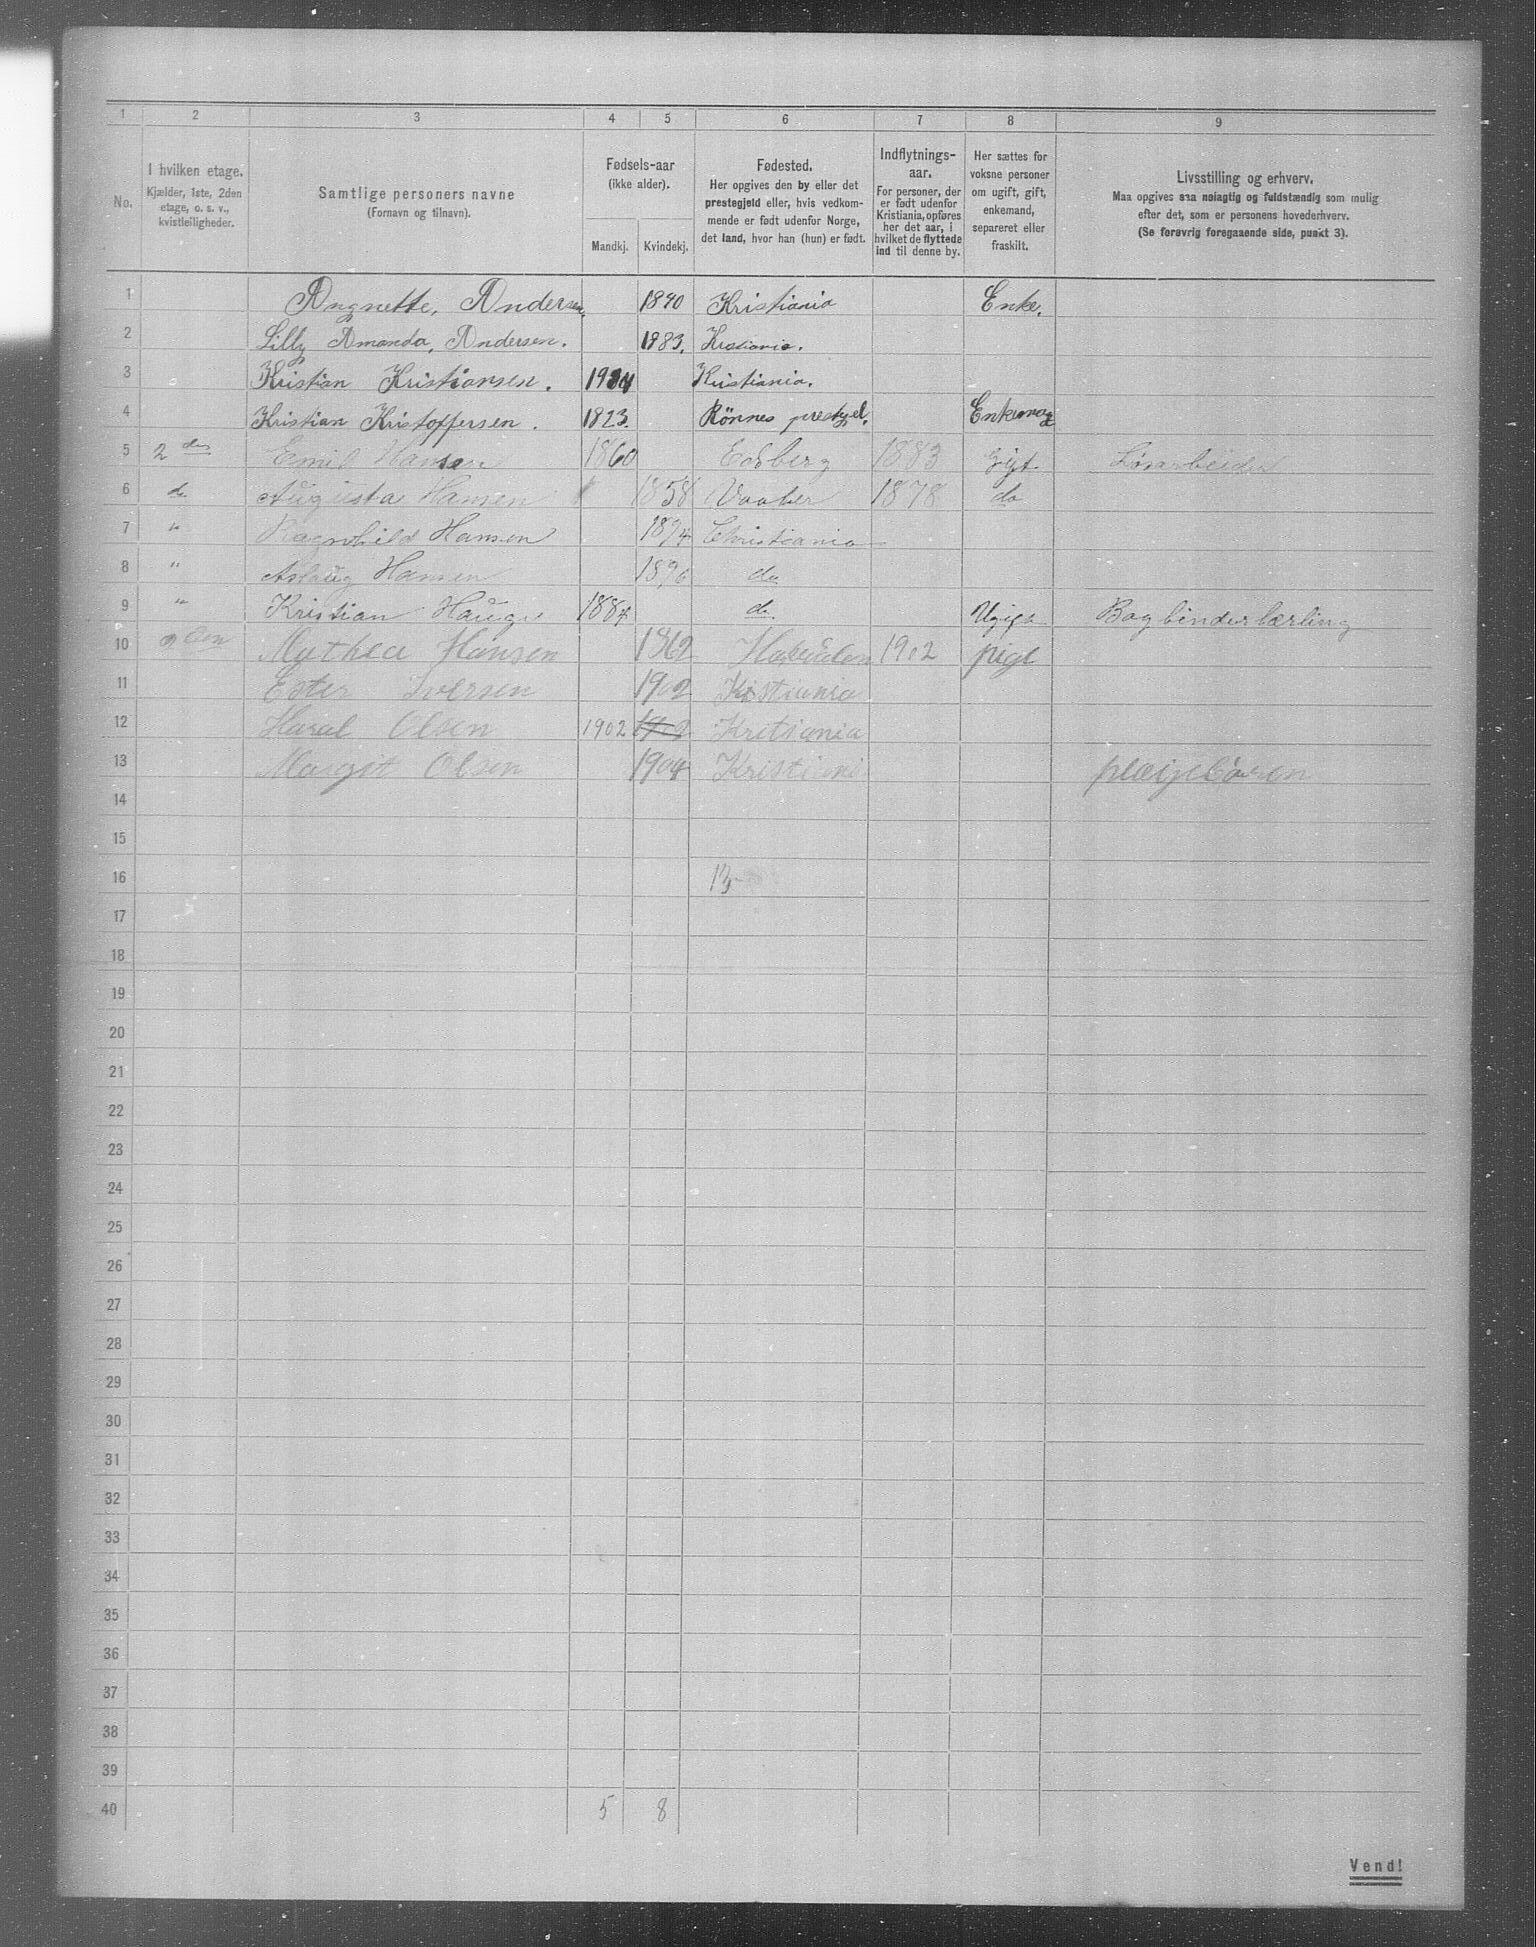 1 2 3 4 5 6 7 8 9
No.
I hvilken etage.
Kjælder, 1ste, 2den
etage, o. s. v.,
kvistleiligheder.
Samtlige personers navne
(Fornavn og tilnavn).
Fødsels-aar
(ikke alder).
Mandkj. Kvindekj.
Fødested.
Her opgives den by eller det
prestegjeld eller, hvis vedkom-
mende er født udenfor Norge,
det land, hvor han (hun) er født.
Indflytnings-
aar.
For personer, der
er født udenfor
Kristiania, opføres
her det aar, i
hvilket de flyttede
ind til denne by.
Her sættes for
voksne personer
om ugift, gift,
enkemand,
separeret eller
fraskilt.
Livsstilling og erhverv.
Maa opgives saa nøiagtig og fuldstændig som mulig
efter det, som er personens hovederhverv.
(Se forøvrig foregaaende side, punkt 3).
1 Angnette, Andersen. 1840 Kristiania Enke.
2 Lilly Amanda, Andersen. 1883.
3 Kristian Kristiansen. Kristiania.
4 Kristian Kristoffersen. 1823. Rönnes
5 2 den Emil Hansen 1860 Edsberg 1883 Gift Løsarbeider
6 do Augusta Hansen 1858 Vaaler 1878 do
7 " Ragnhild Hansen 1894 Christiania
8 " Aslaug Hansen 1896 do
9 " Kristian Hauge 1884 do Bogbinderlærling
10 Mathea Hansen 1862 1902 pige
11 Ester Iversen 1902 Kistiania
12 Haral Olsen 1902 1902 Kritiania
13 Margit Olsen 1904 Kristiani
14
15
16 13
17
18
19
20
21
22
23
24
25
26
27
28
29
30
31
32
33
34
35
36
37
38
39
40 5 8
Vend!